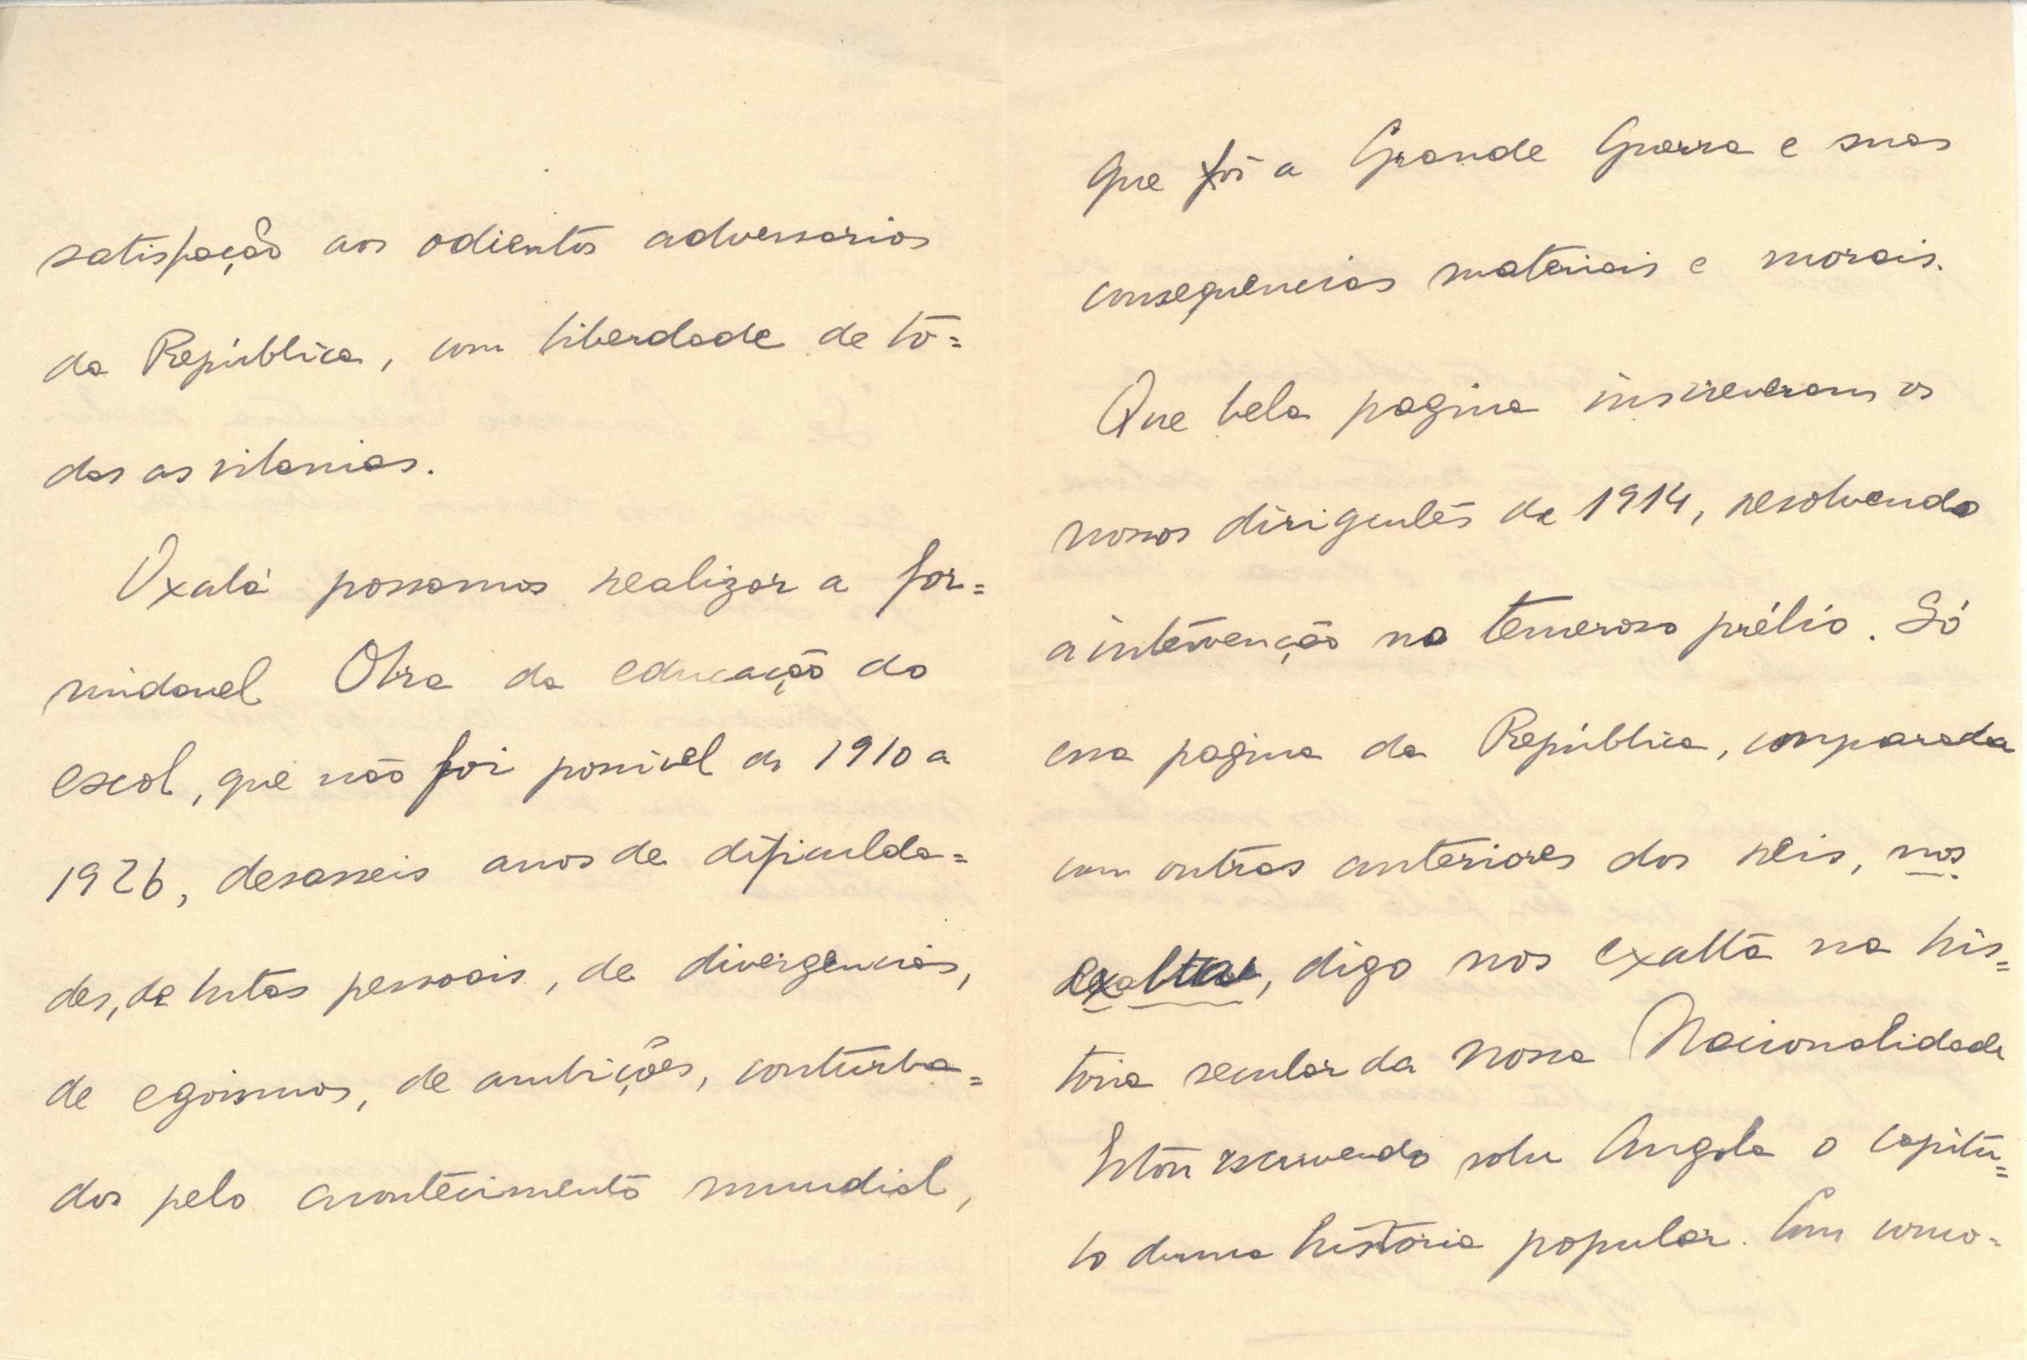 satisfação aos odientos adversarios
da República, com liberdade de tô=
das as vilanias.
Oxalá possamos realizar a for=
midavel Obra da educação do
escol, que não foi possivel de 1910 a
1926, desasseis anos de dificulda=
des, de lutas pessoais, de divergencias,
de egoismos, de ambições, conturba=
dos pelo acontecimento mundial,
que foi a Grande Guerra e suas
consequencias materiais e morais.
Que bela pagina inscreveram os
nossos dirigentes de 1914, resolvendo
a intervenção no temeroso prélio. Só
essa pagina da República, comparada
com outras anteriores dos reis, nos
exaltar, digo nos exalta na his=
toria secular da nossa Nacionalidade
Estou escrevendo sobre Angola o capitu=
lo duma história popular. Com como=